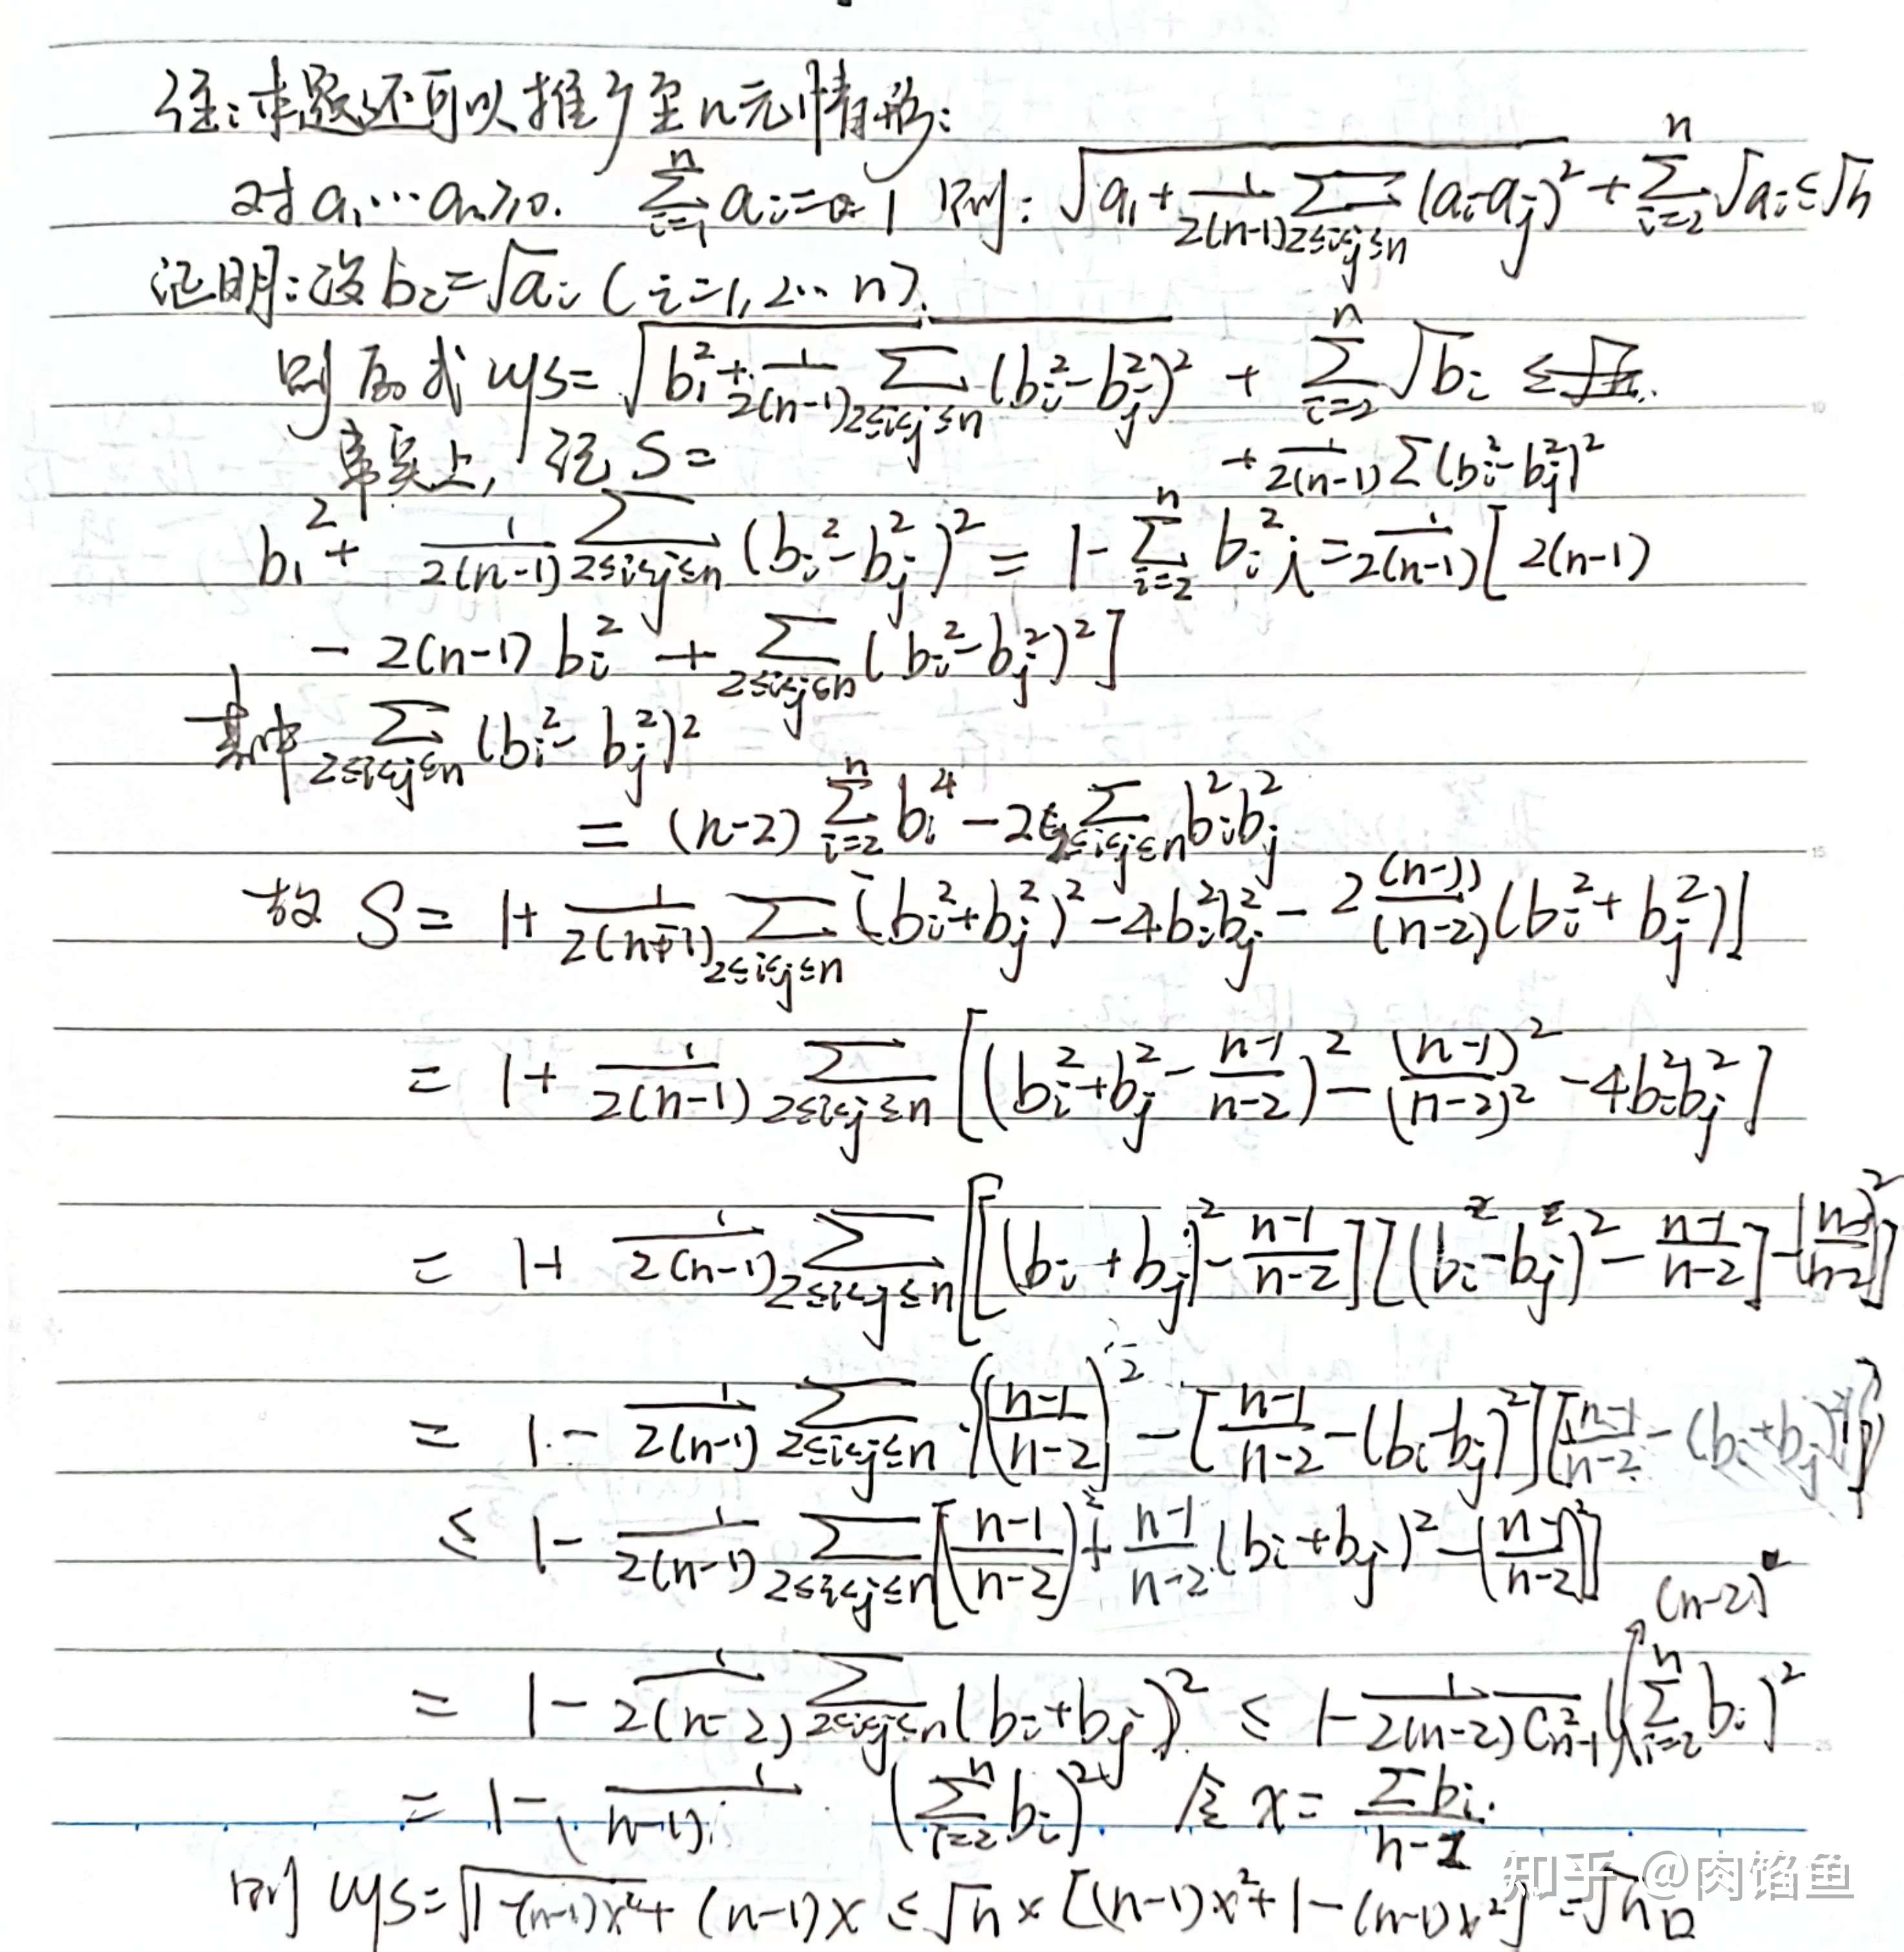 注:本题还可以推广至n元情形:
对a₁…aₙ≥0. ∑_{i=1}^{n} aᵢ=1 则: √(a₁+1/(2(n-1)) ∑_{2≤i<j≤n} (aᵢ-aⱼ)²) + ∑_{i=2}^{n} √aᵢ ≤ √n
证明:设bᵢ=√aᵢ (i=1,2…n).
则原式 LHS= √(b₁²+1/(2(n-1)) ∑_{2≤i<j≤n} (bᵢ²-bⱼ²)²) + ∑_{i=2}^{n} √bᵢ ≤
事实上, 记 S= + 1/(2(n-1)) ∑(bᵢ²-bⱼ²)²
b₁² + 1/(2(n-1)) ∑_{2≤i<j≤n} (bᵢ²-bⱼ²)² = 1- ∑_{i=2}^{n} bᵢ² = 1/(2(n-1)) [ 2(n-1)
- 2(n-1) bᵢ² + ∑_{2≤i<j≤n} (bᵢ²-bⱼ²)² ]
其中 ∑_{2≤i<j≤n} (bᵢ²-bⱼ²)²
= (n-2) ∑_{i=2}^{n} bᵢ⁴ - 2 ∑_{2≤i<j≤n} bᵢ²bⱼ²
故 S= 1+ 1/(2(n-1)) ∑_{2≤i<j≤n} [(bᵢ²+bⱼ²)² - 4bᵢ²bⱼ² - 2 (n-1)/(n-2) (bᵢ²+bⱼ²)]
= 1+ 1/(2(n-1)) ∑_{2≤i<j≤n} [(bᵢ²+bⱼ² - (n-1)/(n-2))² - (n-1)²/(n-2)² - 4bᵢ²bⱼ²]
= 1+ 1/(2(n-1)) ∑_{2≤i<j≤n} [[(bᵢ+bⱼ)² - (n-1)/(n-2)][(bᵢ-bⱼ)² - (n-1)/(n-2)] - ((n-1)/(n-2))²]
= 1- 1/(2(n-1)) ∑_{2≤i<j≤n} {((n-1)/(n-2))² - [(n-1)/(n-2) - (bᵢ-bⱼ)²][(n-1)/(n-2) - (bᵢ+bⱼ)²]}
≤ 1- 1/(2(n-1)) ∑_{2≤i<j≤n} [((n-1)/(n-2))² + (n-1)/(n-2) (bᵢ+bⱼ)² - ((n-1)/(n-2))²]
(n-2)²
= 1- 1/(2(n-2)) ∑_{2≤i<j≤n} (bᵢ+bⱼ)² ≤ 1- 1/(2(n-2)C²ₙ₋₁) (∑_{i=2}^{n} bᵢ)²
= 1- 1/(n-1) (∑_{i=2}^{n} bᵢ)² 令 x= ∑bᵢ/(n-1)
则 LHS= √(1-(n-1)x²) + (n-1)x ≤ √n × [(n-1)x²+1-(n-1)x²] = √n □
知乎 @肉馅鱼